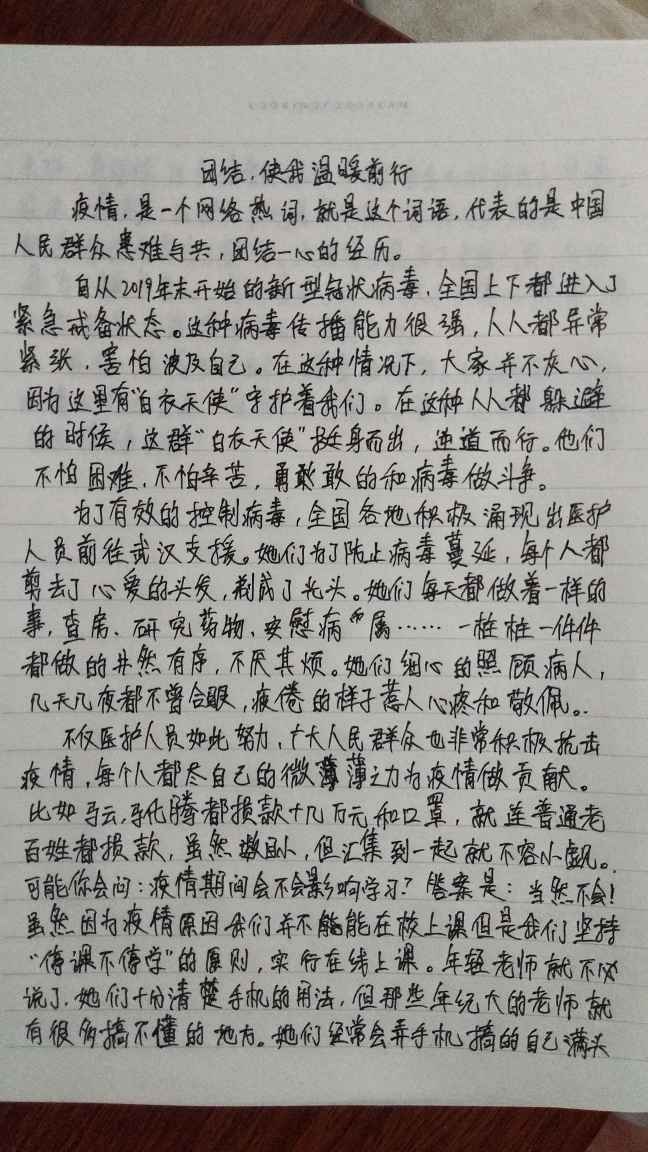 团结,使我温暖前行
疫情,是一个网络热词,就是这个词语,代表的是中国
人民群众患难与共,团结一心的经历。
自从2019年末开始的新型冠状病毒,全国上下都进入了
紧急戒备状态。这种病毒传播能力很强,人人都异常
紧张,害怕波及自己。在这种情况下,大家并不灰心,
因为这里有“白衣天使”守护着我们。在这种人人都躲避
的时候,这群“白衣天使”挺身而出,逆道而行。他们
不怕困难,不怕辛苦,勇敢敢的和病毒做斗争。
为了有效的控制病毒,全国各地积极涌现出医护
人员前往武汉支援。她们为了防止病毒蔓延,每个人都
剪去了心爱的头发,剃成了光头。她们每天都做着一样的
事,查房、研究药物、安慰病属……一桩桩一件件
都做的井然有序,不厌其烦。她们细心的照顾病人,
几天几夜都不曾合眼,疲倦的样子惹人心疼和敬佩。
不仅医护人员如此努力,广大人民群众也非常积极抗击
疫情,每个人都尽自己的微薄之力为疫情做贡献。
比如马云,马化腾都损款十几万元和口罩,就连普通老
百姓都损款,虽然数目小,但汇集到一起就不容小觑。
可能你会问:疫情期间会不会影响学习?答案是:当然不会!
虽然因为疫情原因我们并不能能在校上课但是我们坚持
“停课不停学”的原则,实行在线上课。年轻老师就不必
说了,她们十分清楚手机的用法,但那些年纪大的老师就
有很多搞不懂的地方。她们经常会弄手机搞的自己满头